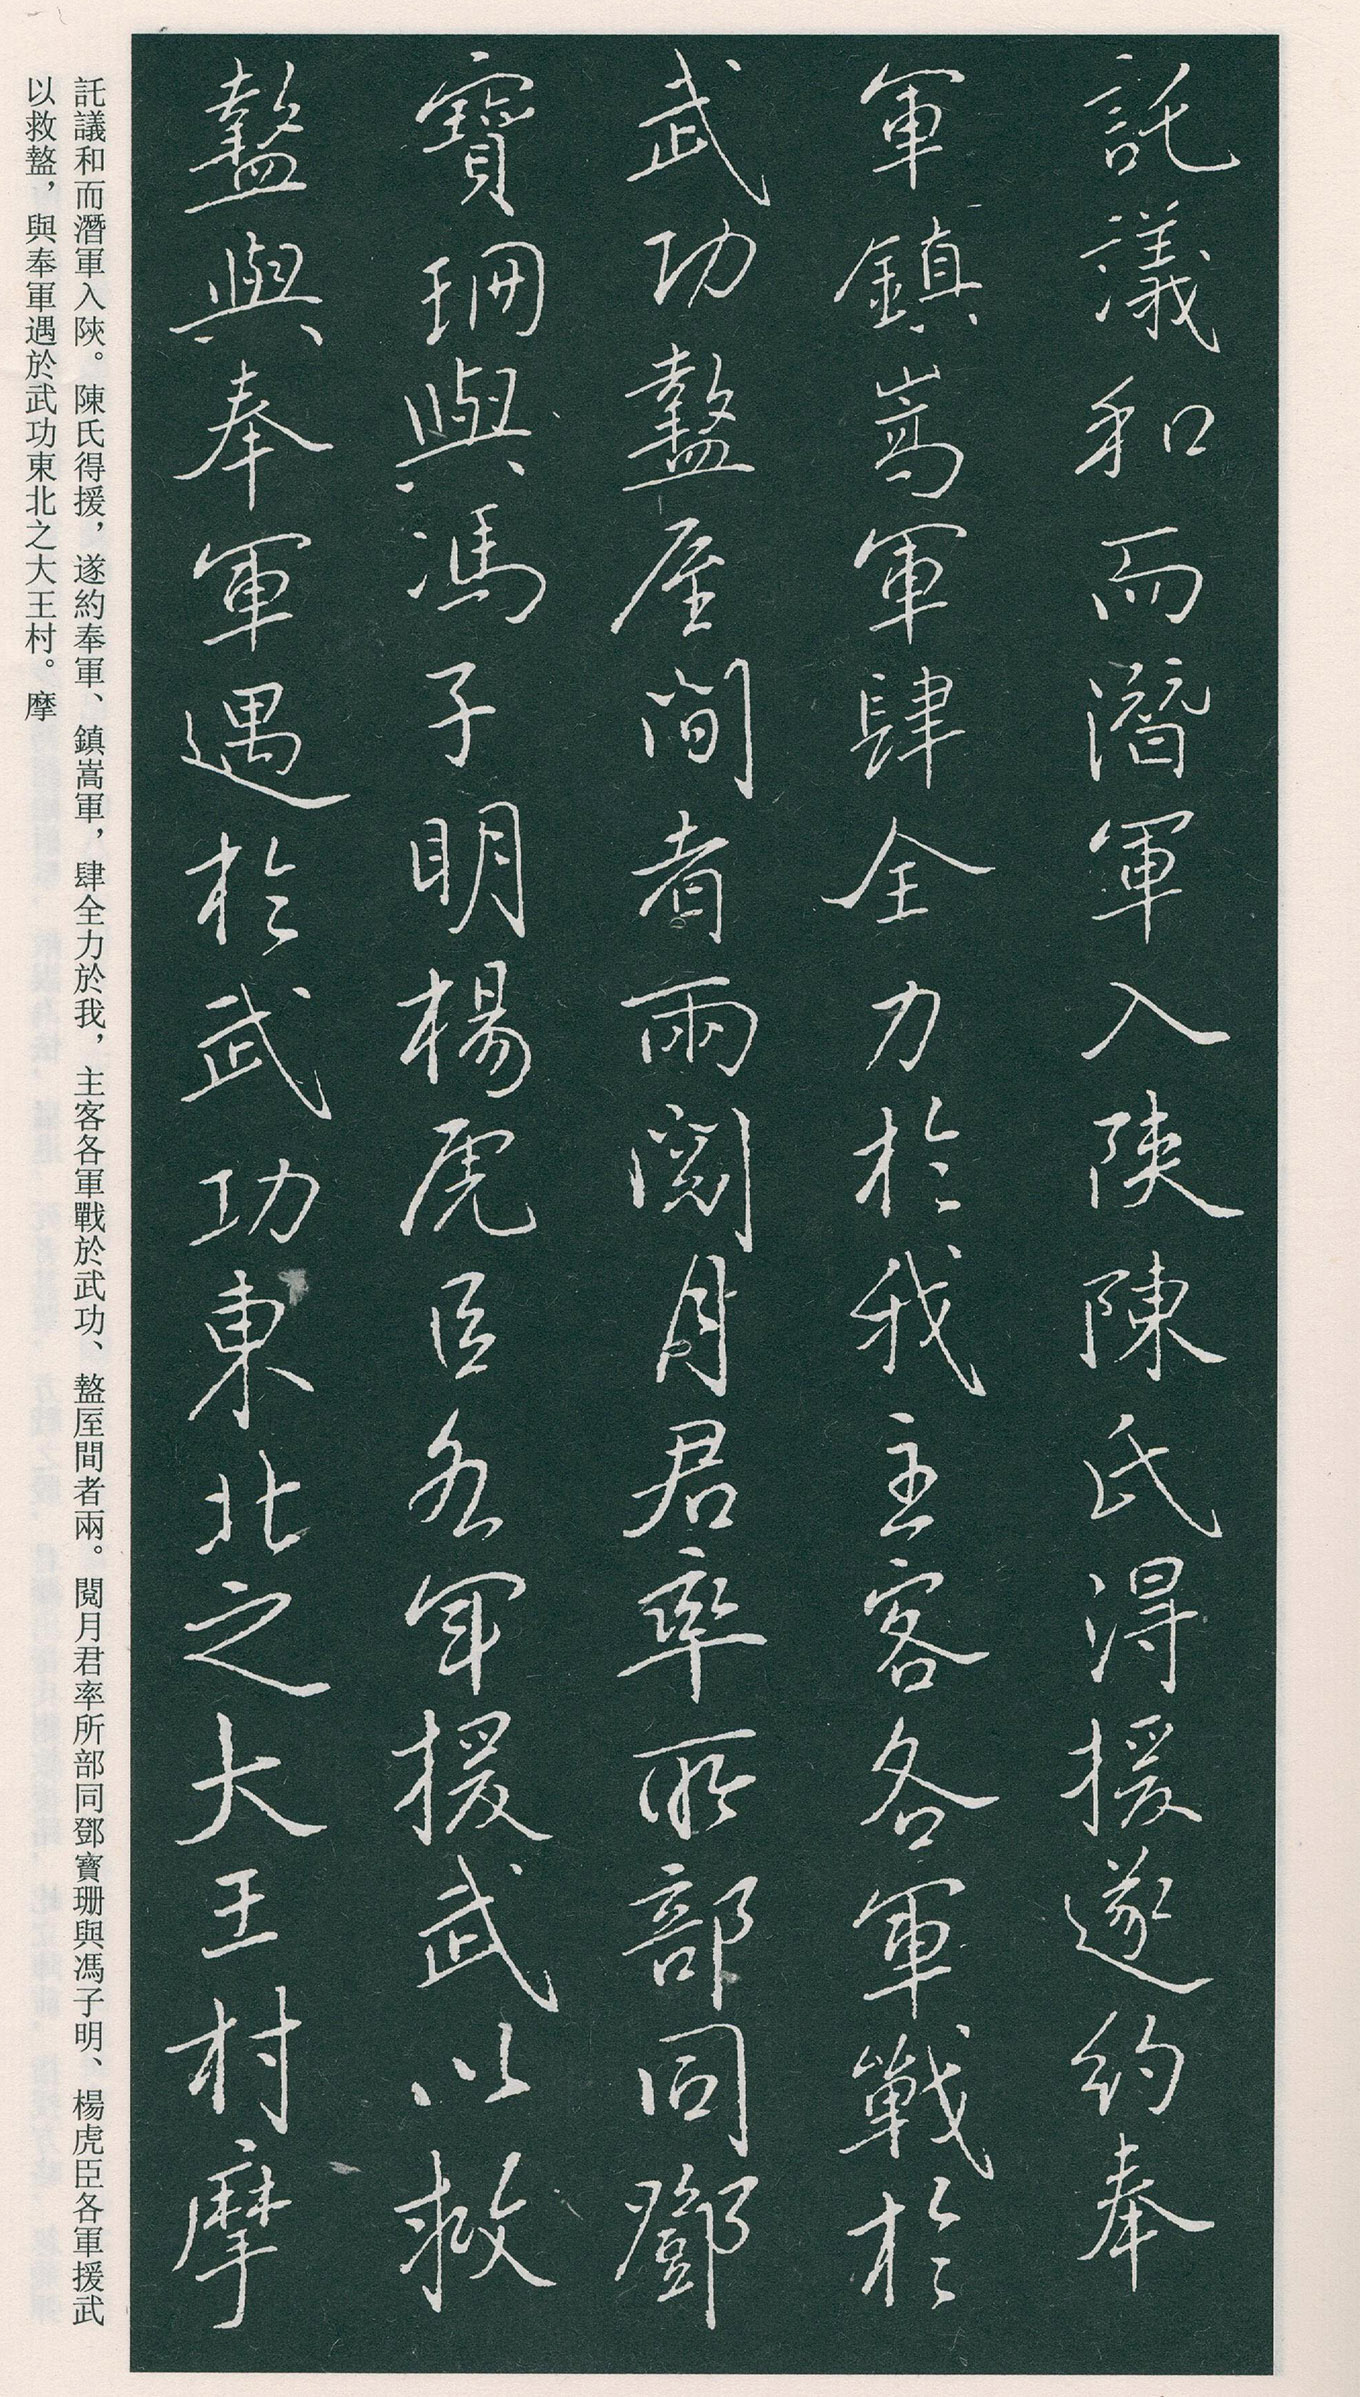 託議和而潛軍入陝陳氏得援遂約奉
軍鎮嵩軍肆全力於我主客各軍戰於
武功盩厔間者兩閱月君率所部同鄧
寶珊與馮子明楊虎臣各軍援武以救
盩與奉軍遇於武功東北之大王村摩
託議和而潛軍入陝。陳氏得援，遂約奉軍、鎮嵩軍，肆全力於我，主客各軍戰於武功、盩厔間者兩。閱月君率所部同鄧寶珊與馮子明、楊虎臣各軍援武
以救盩，與奉軍遇於武功東北之大王村。摩